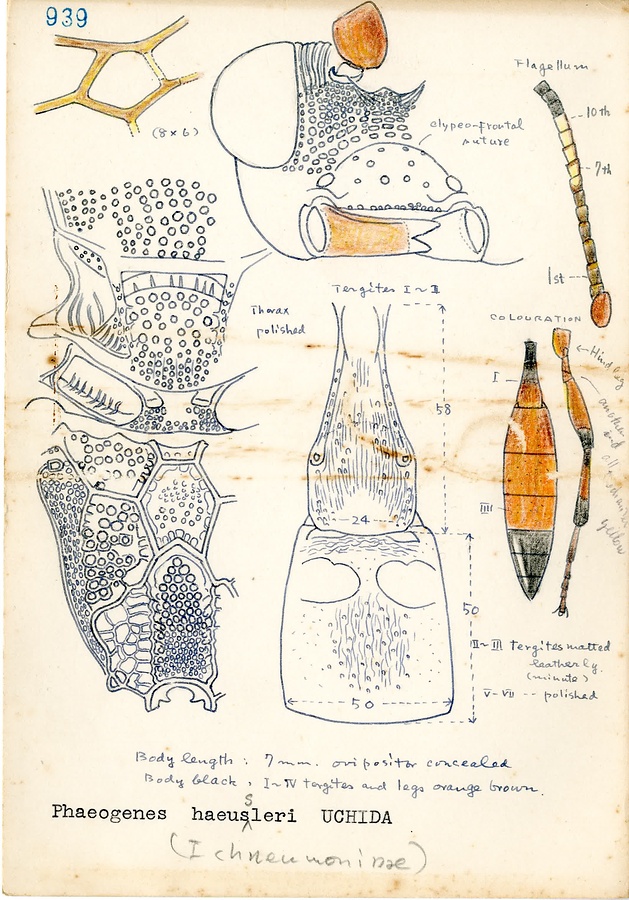 939
(8×6)
clypeo-frontal
suture
Flagellum
10th
7th
1st
Thorax
polished
Tergites I~II
58
24
50
50
COLOURATION
I
III
Hind leg
and all
yellow
II~III tergites matted
leatherly.
(minute)
V-VII -- polished
Body length : 7mm. ovipositor concealed
Body black, I~IV tergites and legs orange brown.
Phaeogenes haeussleri UCHIDA
(Ichneumoninae)